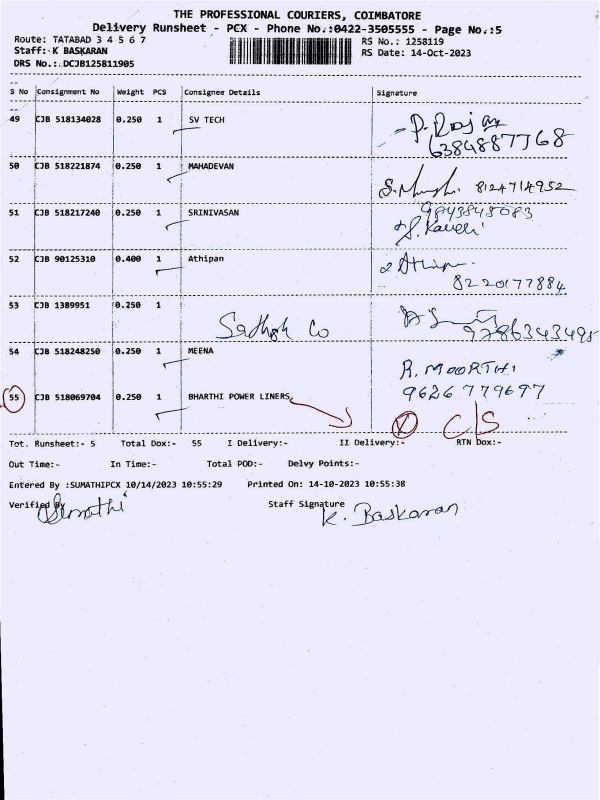 THE PROFESSIONAL COURIERS, COIMBATORE
Delivery Runsheet - PCX - Phone No.:0422-3505555 - Page No.:5
Route: TATABAD 3 4 5 6 7
RS No.: 1258119
Staff: K BASKARAN
RS Date: 14-Oct-2023
DRS No.: DCJB125811905
S No Consignment No Weight PCS Consignee Details Signature
49 CJB 518134028 0.250 1 SV TECH P. Rajan
6384887768
50 CJB 518221874 0.250 1 MAHADEVAN
8124714952
51 CJB 518217240 0.250 1 SRINIVASAN 9843848083
S. Kaveri
52 CJB 90125310 0.400 1 Athipan Athipan
8220177884
53 CJB 1389951 0.250 1
Co 9786343495
54 CJB 518248250 0.250 1 MEENA R. MOORTHI
9626779697
55 CJB 518069704 0.250 1 BHARTHI POWER LINERS, C/S
Tot. Runsheet:- 5 Total Dox:- 55 I Delivery:- II Delivery:- RTN Dox:-
Out Time:- In Time:- Total POD:- Delvy Points:-
Entered By :SUMATHIPCX 10/14/2023 10:55:29 Printed On: 14-10-2023 10:55:38
Verified By Staff Signature
Sumathi K. Baskaran